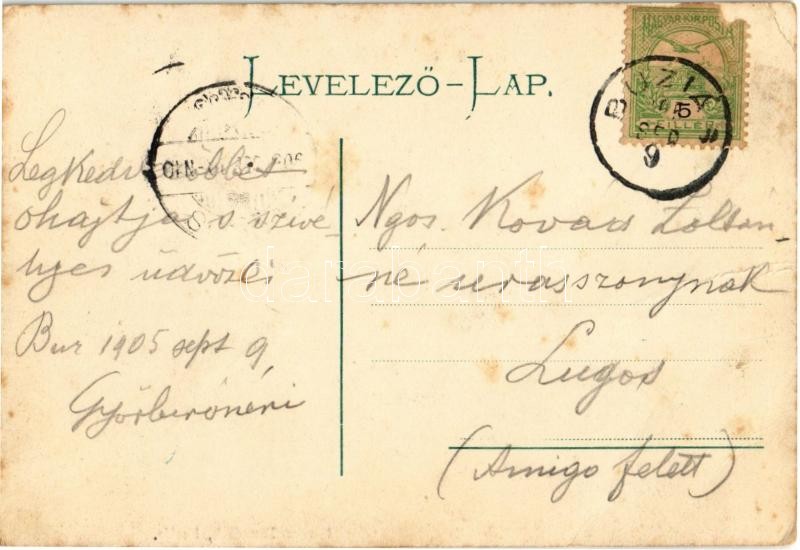 LEVELEZŐ-LAP.
MAGYAR KIR. POSTA
5
FILLÉR
BUZIÁS
SEP
9
Legkedvesebbet
óhajtja s szívé-
lyes üdvözli
Buz 1905 sept 9
Győrbíróné
Ngos. Kovács Zoltán-
né úrasszonynak
Lugos
(Amigo felett)
darabanth